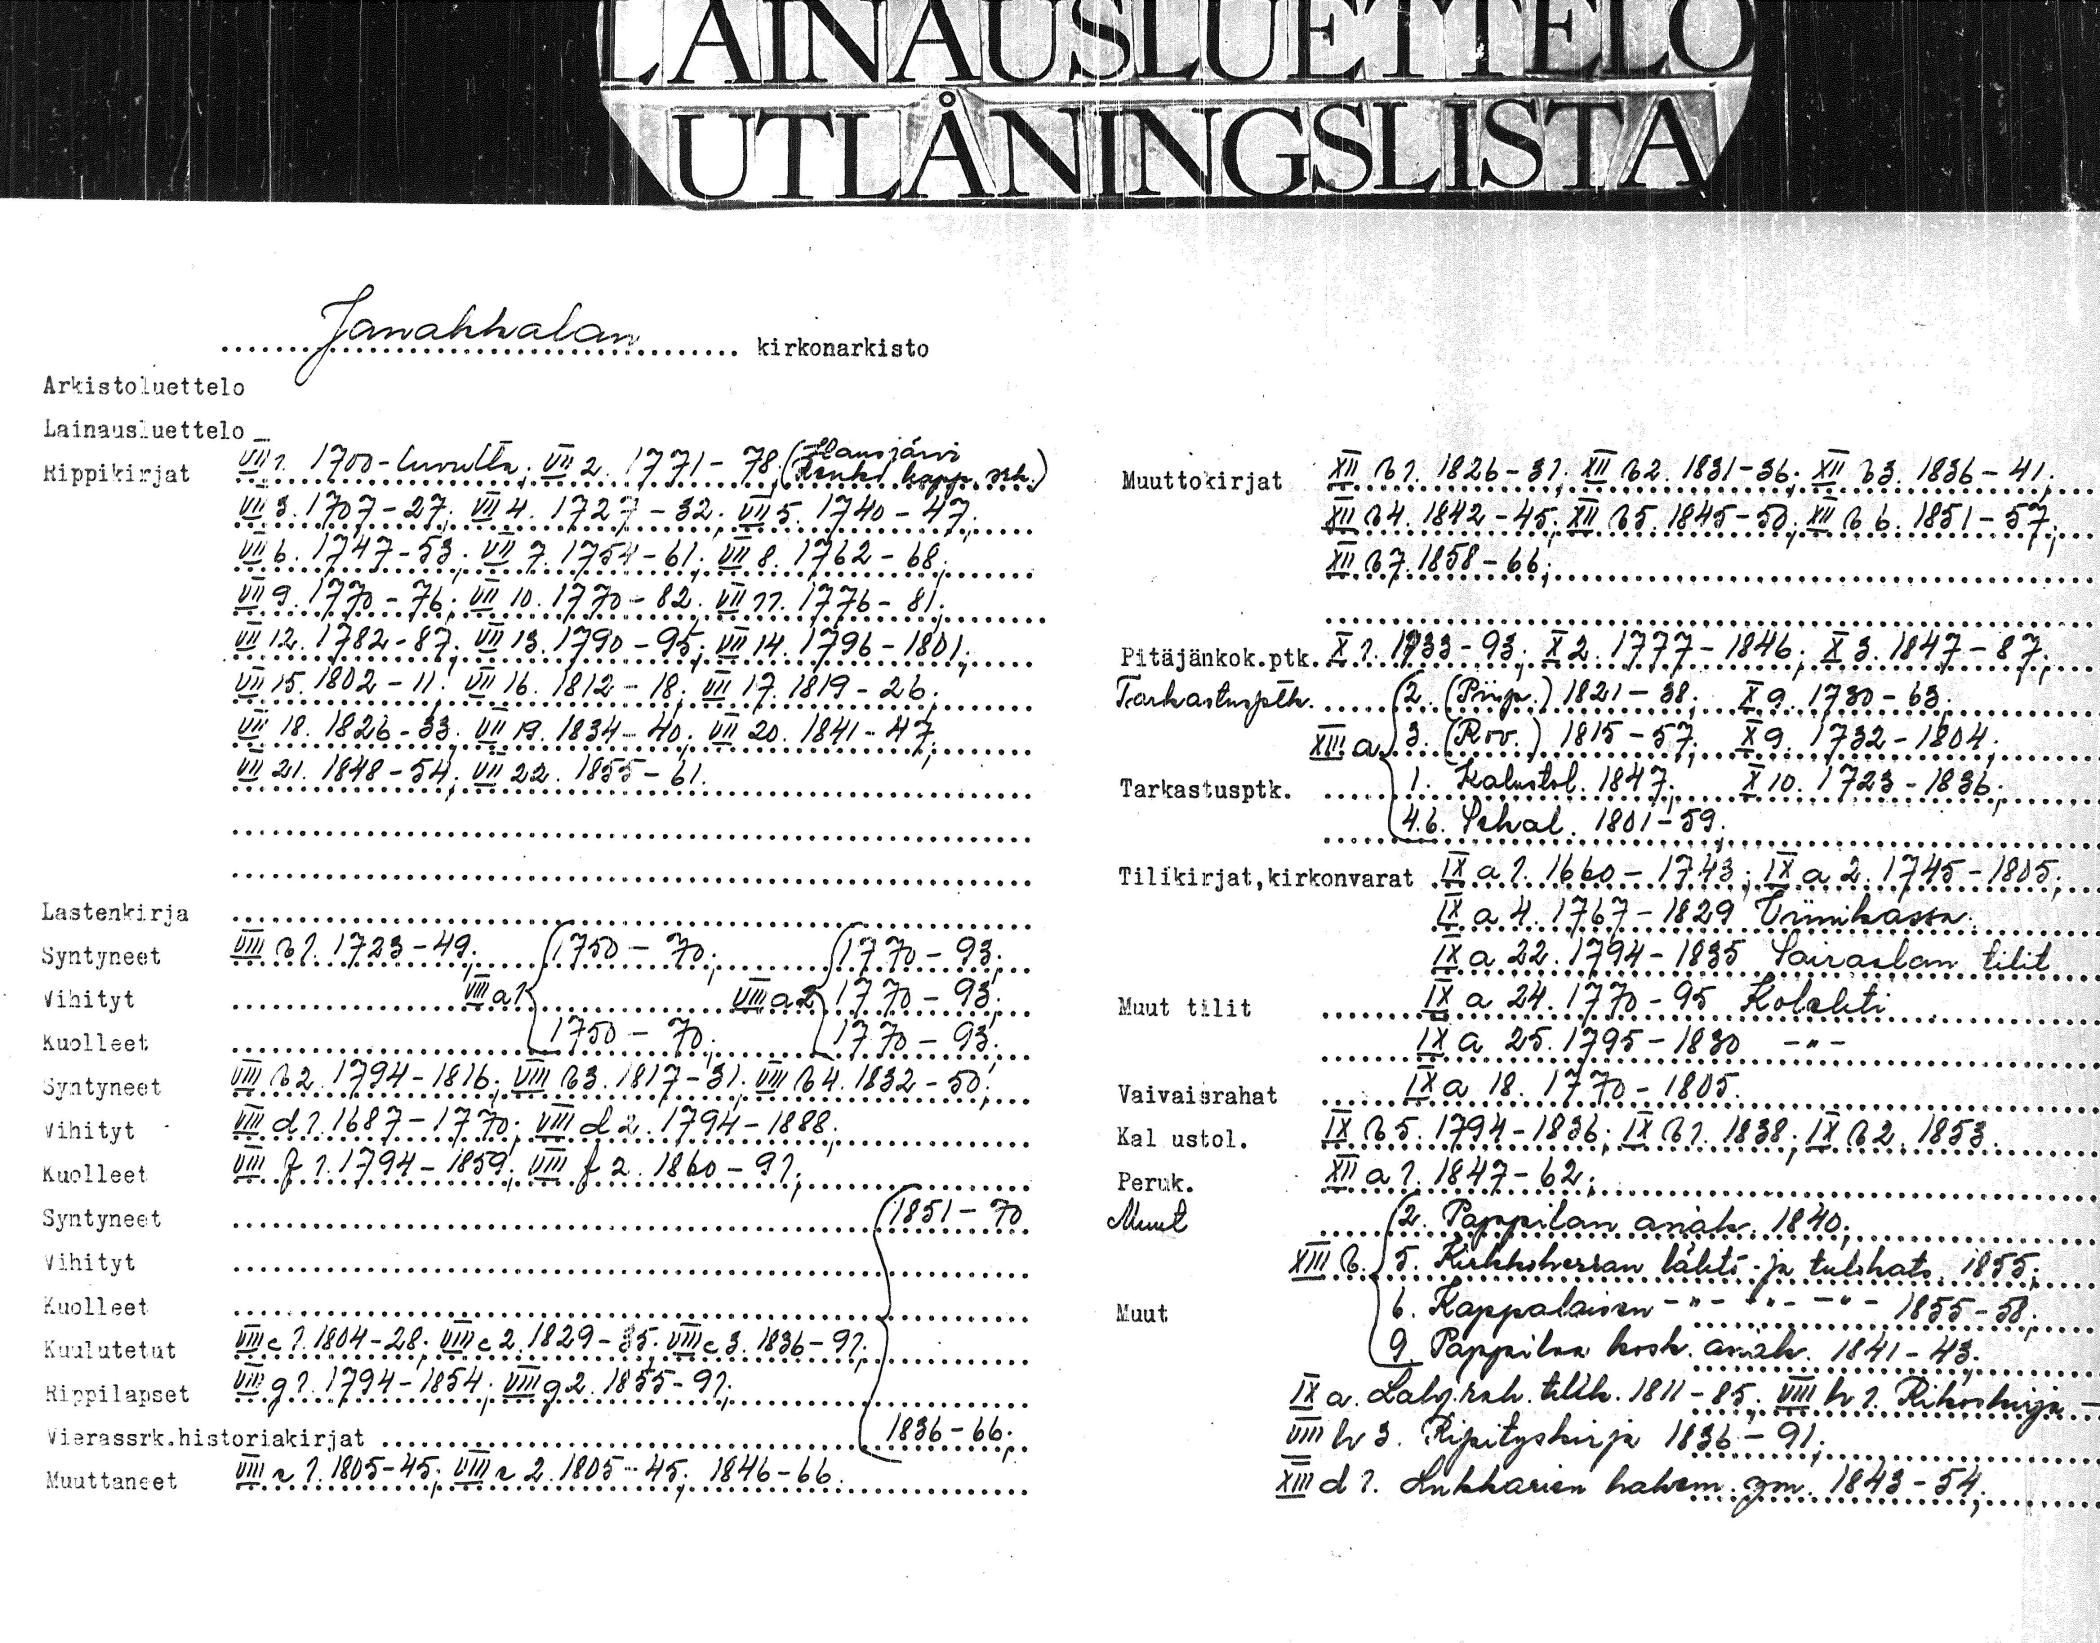 LAINAUSLUETTELO
UTLÅNINGSLISTA
Janakkalan kirkonarkisto
Arkistoluettelo
Lainausluettelo
Rippikirjat VII 1. 1700-luvulta; VII 2. 1771-78 (Hausjärvi kapp. srk.)
VII 3. 1707-27; VII 4. 1727-32; VII 5. 1740-47;
VII 6. 1747-53; VII 7. 1754-61; VII 8. 1762-68;
VII 9. 1770-76; VII 10. 1770-82. VII 11. 1776-81;
VII 12. 1782-87; VII 13. 1790-95; VII 14. 1796-1801;
VII 15. 1802-11; VII 16. 1812-18; VII 17. 1819-26;
VII 18. 1826-33. VII 19. 1834-40; VII 20. 1841-47;
VII 21. 1848-54; VII 22. 1855-61.
Lastenkirja
Syntyneet VIII b 1. 1723-49; 1750-70; 1770-93;
Vihityt VIII a 1 VIII a 2 1770-93;
Kuolleet 1750-70; 1770-93;
Syntyneet VIII b 2. 1794-1816; VIII b 3. 1817-31; VIII b 4. 1832-50;
Vihityt VIII d 1. 1687-1770; VIII d 2. 1794-1888;
Kuolleet VIII f 1. 1794-1859; VIII f 2. 1860-91;
Syntyneet 1851-70
Vihityt
Kuolleet
Kuulutetut VIII c 1. 1804-28; VIII c 2. 1829-35; VIII c 3. 1836-91;
Rippilapset VIII g 1. 1794-1854; VIII g 2. 1855-91;
Vierassrk.historiakirjat 1836-66;
Muuttaneet VIII a 1. 1805-45; VIII a 2. 1805-45; 1846-66.
Muuttokirjat XII b 1. 1826-31; XII b 2. 1831-36; XII b 3. 1836-41;
XII b 4. 1842-45; XII b 5. 1845-50; XII b 6. 1851-57;
XII b 7. 1858-66;
Pitäjänkok.ptk. X 1. 1733-93; X 2. 1777-1846; X 3. 1847-87;
Tarkastusptk. 2. (Piisp.) 1821-38; X 9. 1730-63;
XIII a 3. (Rov.) 1815-57; X 9. 1732-1804;
Tarkastusptk. 1. Kalustol. 1847; X 10. 1723-1836;
4.6. Sekal. 1801-59;
Tilikirjat,kirkonvarat IX a 1. 1660-1743; IX a 2. 1745-1805;
IX a 4. 1767-1829 Viinikassa.
IX a 22. 1794-1835 Sairaalan tilit
Muut tilit IX a 24. 1770-95 Kolehti
IX a 25. 1795-1830 -"-
Vaivaisrahat IX a 18. 1770-1805.
Kal ustol. IX b 5. 1794-1836; IX b 1. 1838; IX b 2. 1853.
Peruk. XII a 1. 1847-62;
Muut 2. Pappilan asiak. 1840;
XIII b. 5. Kirkkoherran lähtö- ja tulokats. 1855;
Muut 6. Kappalaisen -"- -"- -"- 1855-58;
9. Pappilaa kosk. asiak. 1841-43.
IX a. Lahj.rah. tilik. 1811-85; VIII h 1. Rikoskirja -
VIII h 3. Ripityskirja 1836-91;
XIII d 1. Lukkarien hakem. ym. 1843-54;